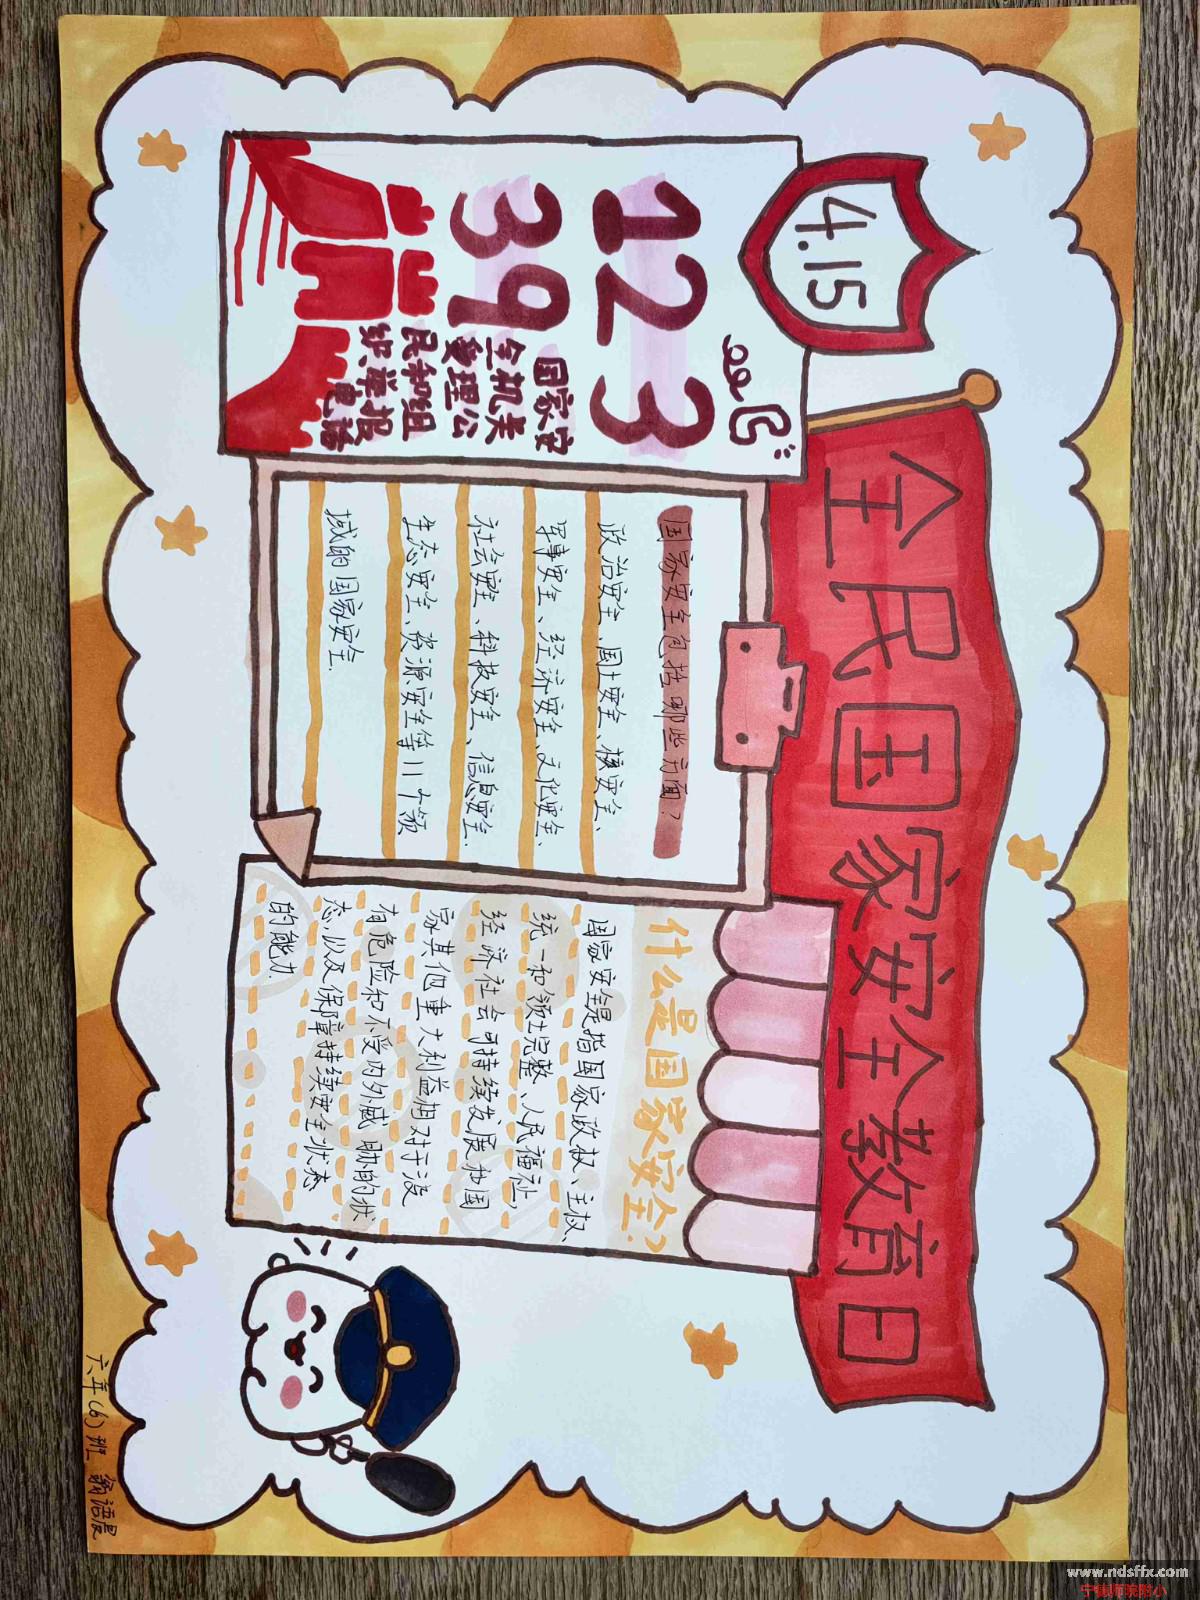 4.15
全民国家安全教育日
123
39
国家安
全机关
受理公
民和组
织举报
电话
国家安全包括哪些方面？
政治安全、国土安全、核安全、
军事安全、经济安全、文化安全、
社会安全、科技安全、信息安全、
生态安全、资源安全等11个领
域的国家安全.
什么是国家安全?
国家安全是指国家政权、主权、
统一和领土完整、人民福祉，
经济社会可持续发展和国
家其他重大利益相对于没
有危险和不受内外威胁的状
态，以及保障持续安全状态
的能力.
六年(6)班 语晨
www.ndsffx.com
宁德师院附小